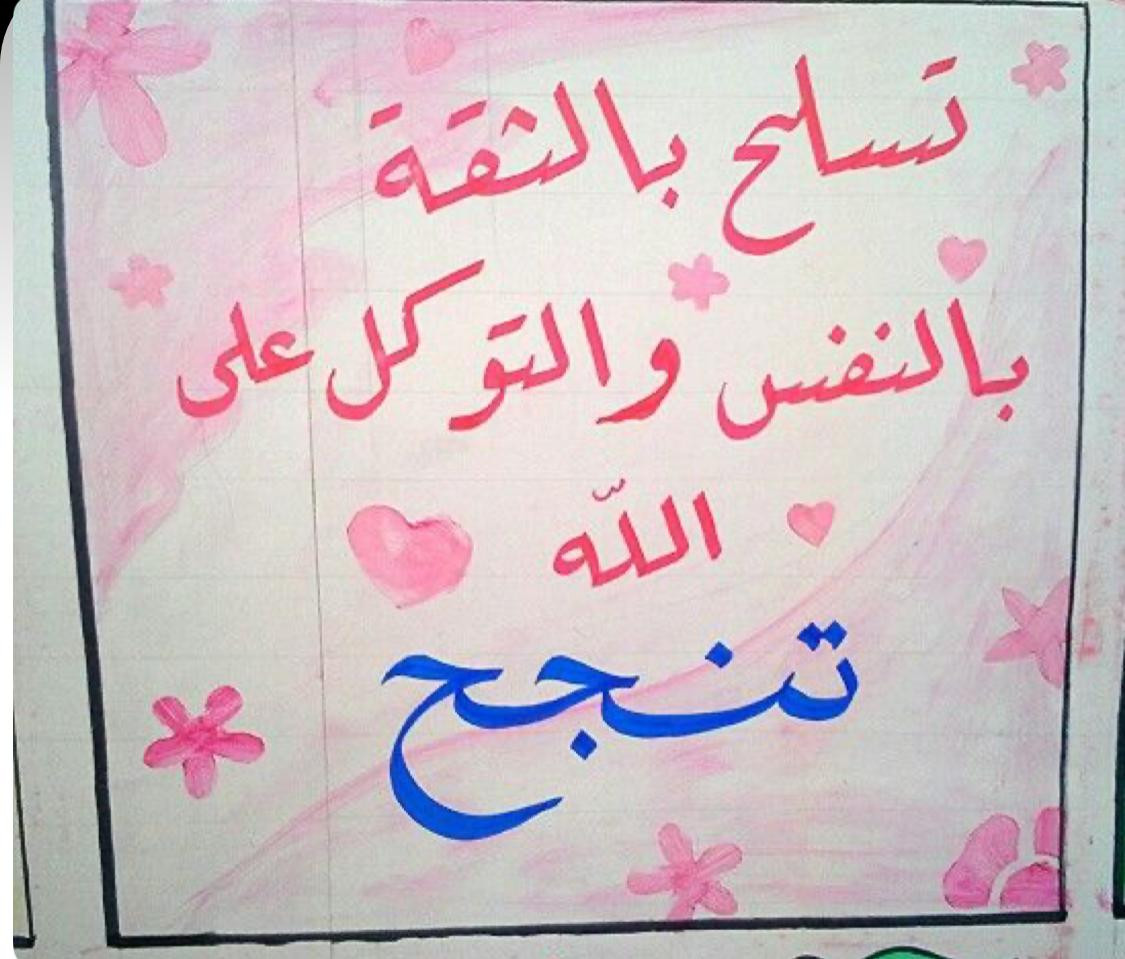 تسلح بالثقة
بالنفس والتوكل على
اللّه
تنجح